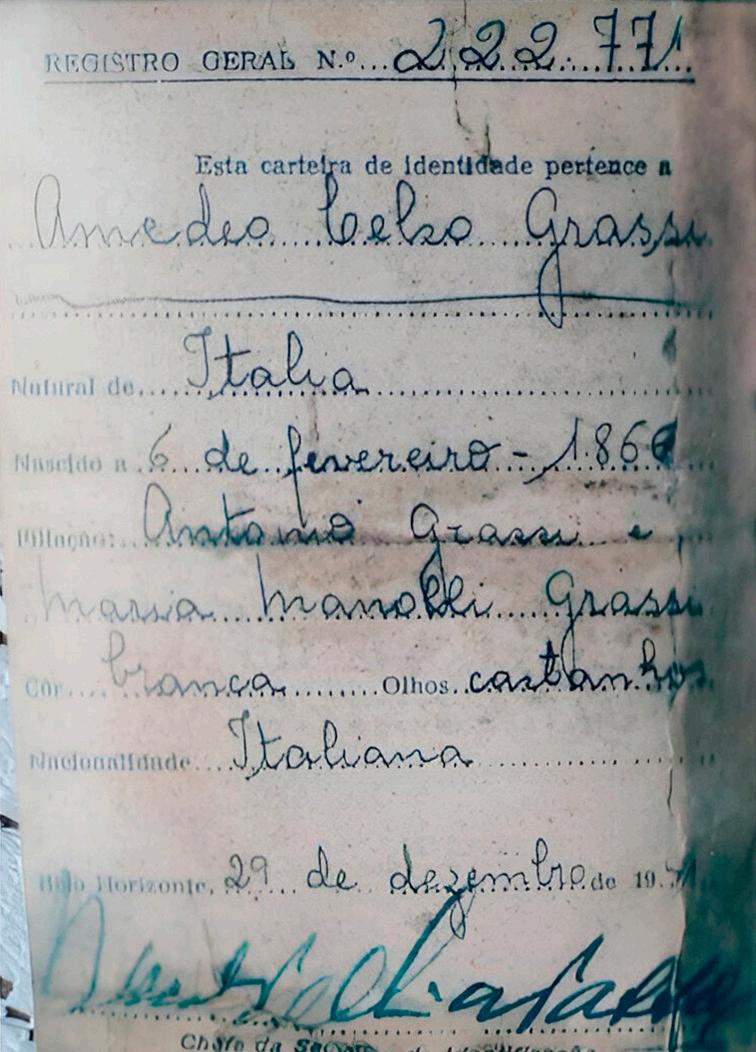 REGISTRO GERAL N.º...222.771
Esta carteira de identidade pertence a
Amedeo Celso Grassi
Natural de... Italia
Nascido a 6 de fevereiro - 1866
Filiação: Antonio Grassi e
Maria Manolli Grassi
Côr.... branca ........Olhos.. castanhos
Nacionalidade... Italiana
Belo Horizonte, 29 de dezembro de 19
Chefe da